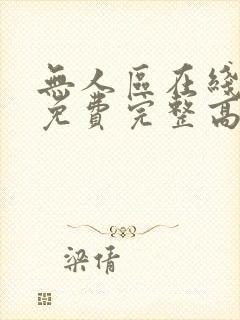 無人區在綫
免費完整高
梁倩